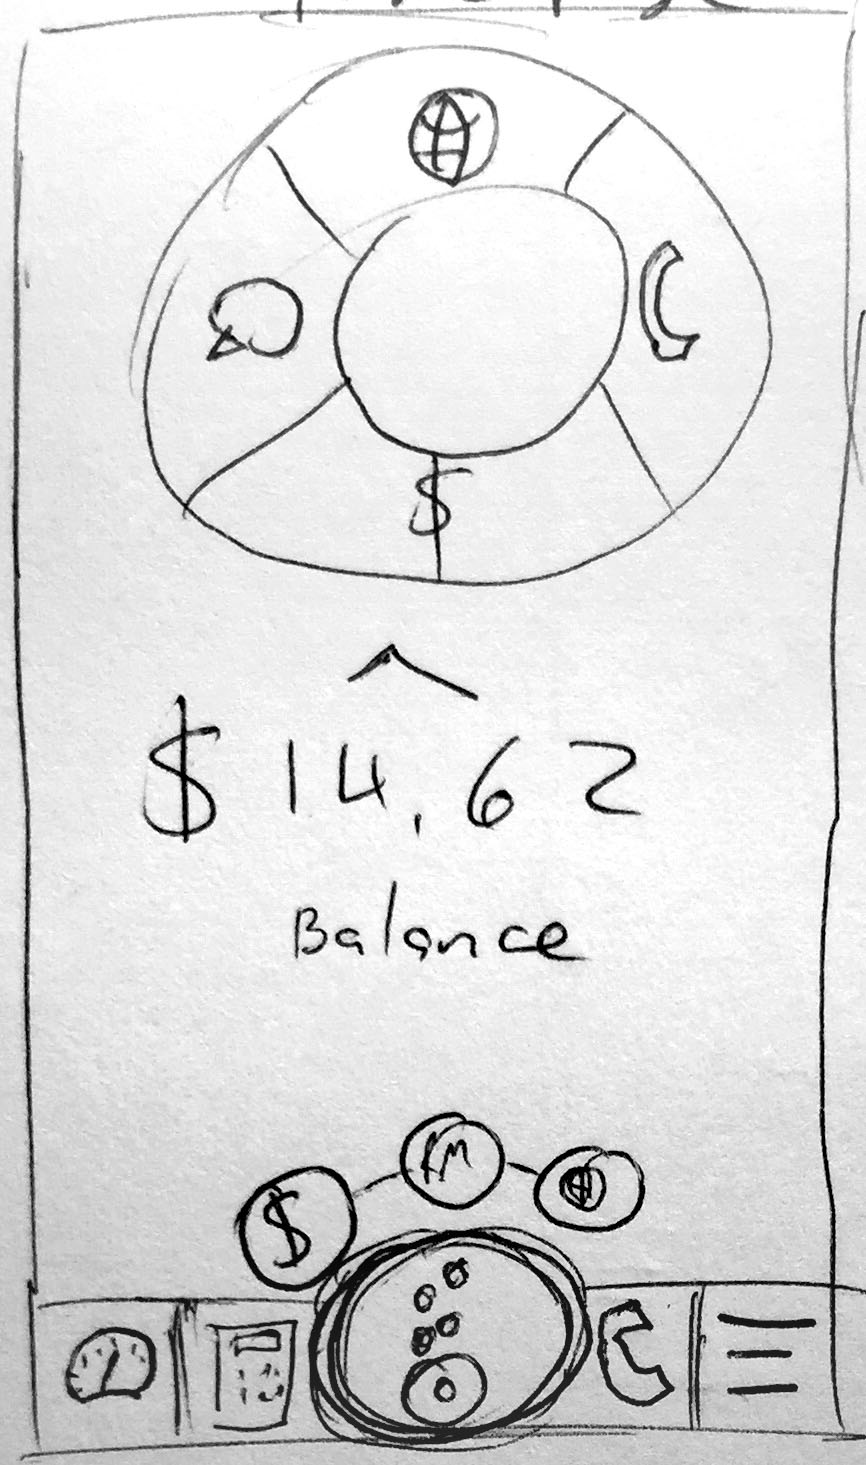 $
$ 14.62
Balance
$